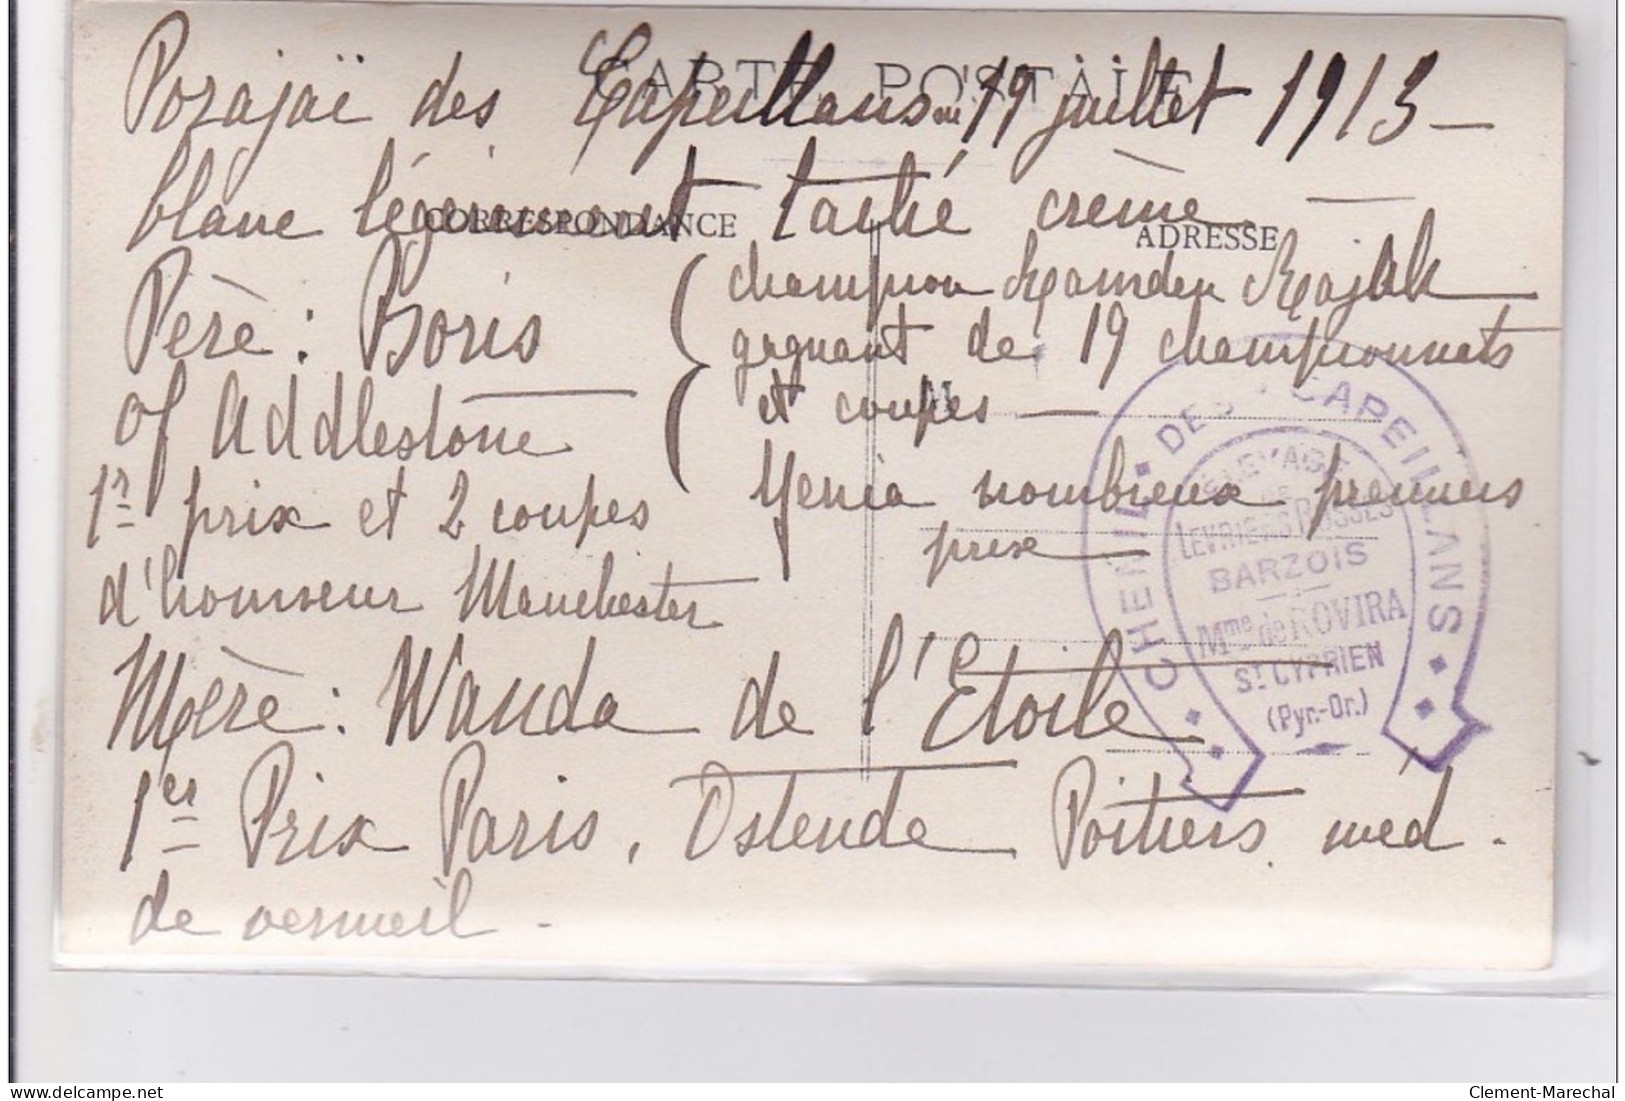 CARTE POSTALE
Porajaï des Capeillans né 19 juillet 1913 —
blanc légèrement taché crème —
CORRESPONDANCE
ADRESSE
Père : Boris
of Addlestone
1er prix et 2 coupes
d'honneur Manchester
champion Ramden Rajah
gagnant de 19 championnats
et coupes —
Xenia nombreux premiers
prix
Mère : Wanda de l'Etoile
1ers Prix Paris, Ostende Poitiers méd.
de vermeil -
CHENIL DES CAPEILLANS
ELEVAGE
DE
LEVRIERS RUSSES
BARZOIS
Mme de ROVIRA
St CYPRIEN
(Pyr.-Or.)
delcampe.net
Clement-Marechal